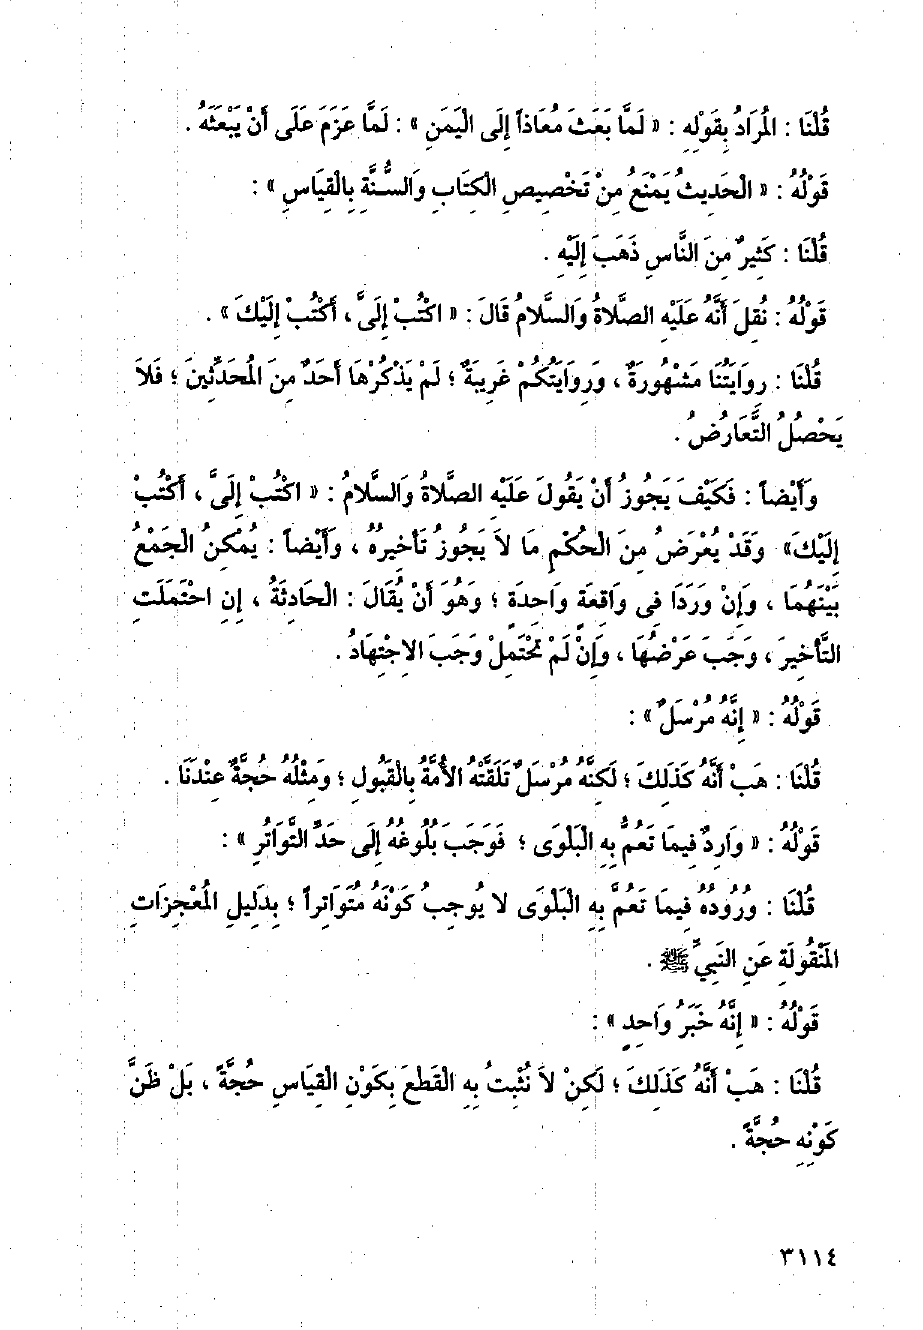 قُلْنَا : المُرَادُ بِقَوْلِهِ : « لَمَّا بَعَثَ مُعَاذاً إِلَى الْيَمَنِ » : لَمَّا عَزَمَ عَلَى أَنْ يَبْعَثَهُ .
قَوْلُهُ : « الْحَدِيثُ يَمْنَعُ مِنْ تَخْصِيصِ الْكِتَابِ وَالسُّنَّةِ بِالْقِيَاسِ » :
قُلْنَا : كَثِيرٌ مِنَ النَّاسِ ذَهَبَ إِلَيْهِ .
قَوْلُهُ : نُقِلَ أَنَّهُ عَلَيْهِ الصَّلاةُ وَالسَّلامُ قَالَ : « اكْتُبْ إِلَىَّ ، أَكْتُبْ إِلَيْكَ » .
قُلْنَا : رِوَايَتُنَا مَشْهُورَةٌ ، وَرِوَايَتُكُمْ غَرِيبَةٌ ؛ لَمْ يَذْكُرْهَا أَحَدٌ مِنَ الْمُحَدِّثِينَ ؛ فَلاَ
يَحْصُلُ التَّعَارُضُ .
وَأَيْضاً : فَكَيْفَ يَجُوزُ أَنْ يَقُولَ عَلَيْهِ الصَّلاةُ وَالسَّلامُ : « اكْتُبْ إِلَىَّ ، أَكْتُبْ
إِلَيْكَ» وَقَدْ يُعْرَضُ مِنَ الْحُكْمِ مَا لاَ يَجُوزُ تَأْخِيرُهُ ، وَأَيْضاً : يُمْكِنُ الْجَمْعُ
بَيْنَهُمَا ، وَإِنْ وَرَدَا فِى وَاقِعَةٍ وَاحِدَةٍ ؛ وَهُوَ أَنْ يُقَالَ : الْحَادِثَةُ ، إِنِ احْتَمَلَتِ
التَّأْخِيرَ ، وَجَبَ عَرْضُهَا ، وَإِنْ لَمْ تَحْتَمِلْ وَجَبَ الاِجْتِهَادُ .
قَوْلُهُ : « إِنَّهُ مُرْسَلٌ » :
قُلْنَا : هَبْ أَنَّهُ كَذَلِكَ ؛ لَكِنَّهُ مُرْسَلٌ تَلَقَّتْهُ الأُمَّةُ بِالْقَبُولِ ؛ وَمِثْلُهُ حُجَّةٌ عِنْدَنَا .
قَوْلُهُ : « وَارِدٌ فِيمَا تَعُمُّ بِهِ الْبَلْوَى ؛ فَوَجَبَ بُلُوغُهُ إِلَى حَدِّ التَّوَاتُرِ » :
قُلْنَا : وُرُودُهُ فِيمَا تَعُمُّ بِهِ الْبَلْوَى لا يُوجِبُ كَوْنَهُ مُتَوَاتِراً ؛ بِدَلِيلِ الْمُعْجِزَاتِ
الْمَنْقُولَةِ عَنِ النَّبِيِّ ﷺ .
قَوْلُهُ : « إِنَّهُ خَبَرُ وَاحِدٍ » :
قُلْنَا : هَبْ أَنَّهُ كَذَلِكَ ؛ لَكِنْ لاَ نُثْبِتُ بِهِ الْقَطْعَ بِكَوْنِ الْقِيَاسِ حُجَّةً ، بَلْ ظَنَّ
كَوْنِهِ حُجَّةً .
٣١١٤